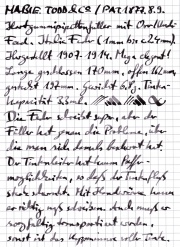 MABIE TODD & CO / PAT. 1877, 8.9.
Hartgummipipettenfüller mit Overlay
Feed. Italic Feder (1mm bis 2.4mm).
Hergestellt 1907-1914. Mega elegant!
Länge geschlossen 170mm, offen 162mm,
gesteckt 192mm. Gewicht 6.8g. Tinten-
kapazität 2.5ml.
Die Feder schreibt super, aber der
Füller hat genau die Probleme, über
die man sich damals beschwert hat.
Der Tintenleiter hat kaum Puffer-
möglichkeiten, so daß der Tintenfluß
stark schwankt. Mit Handwärme kann
er richtig naß schreiben. Auch muß er
sorgfältig transportiert werden,
sonst ist das Kappeninnere voller Tinte.